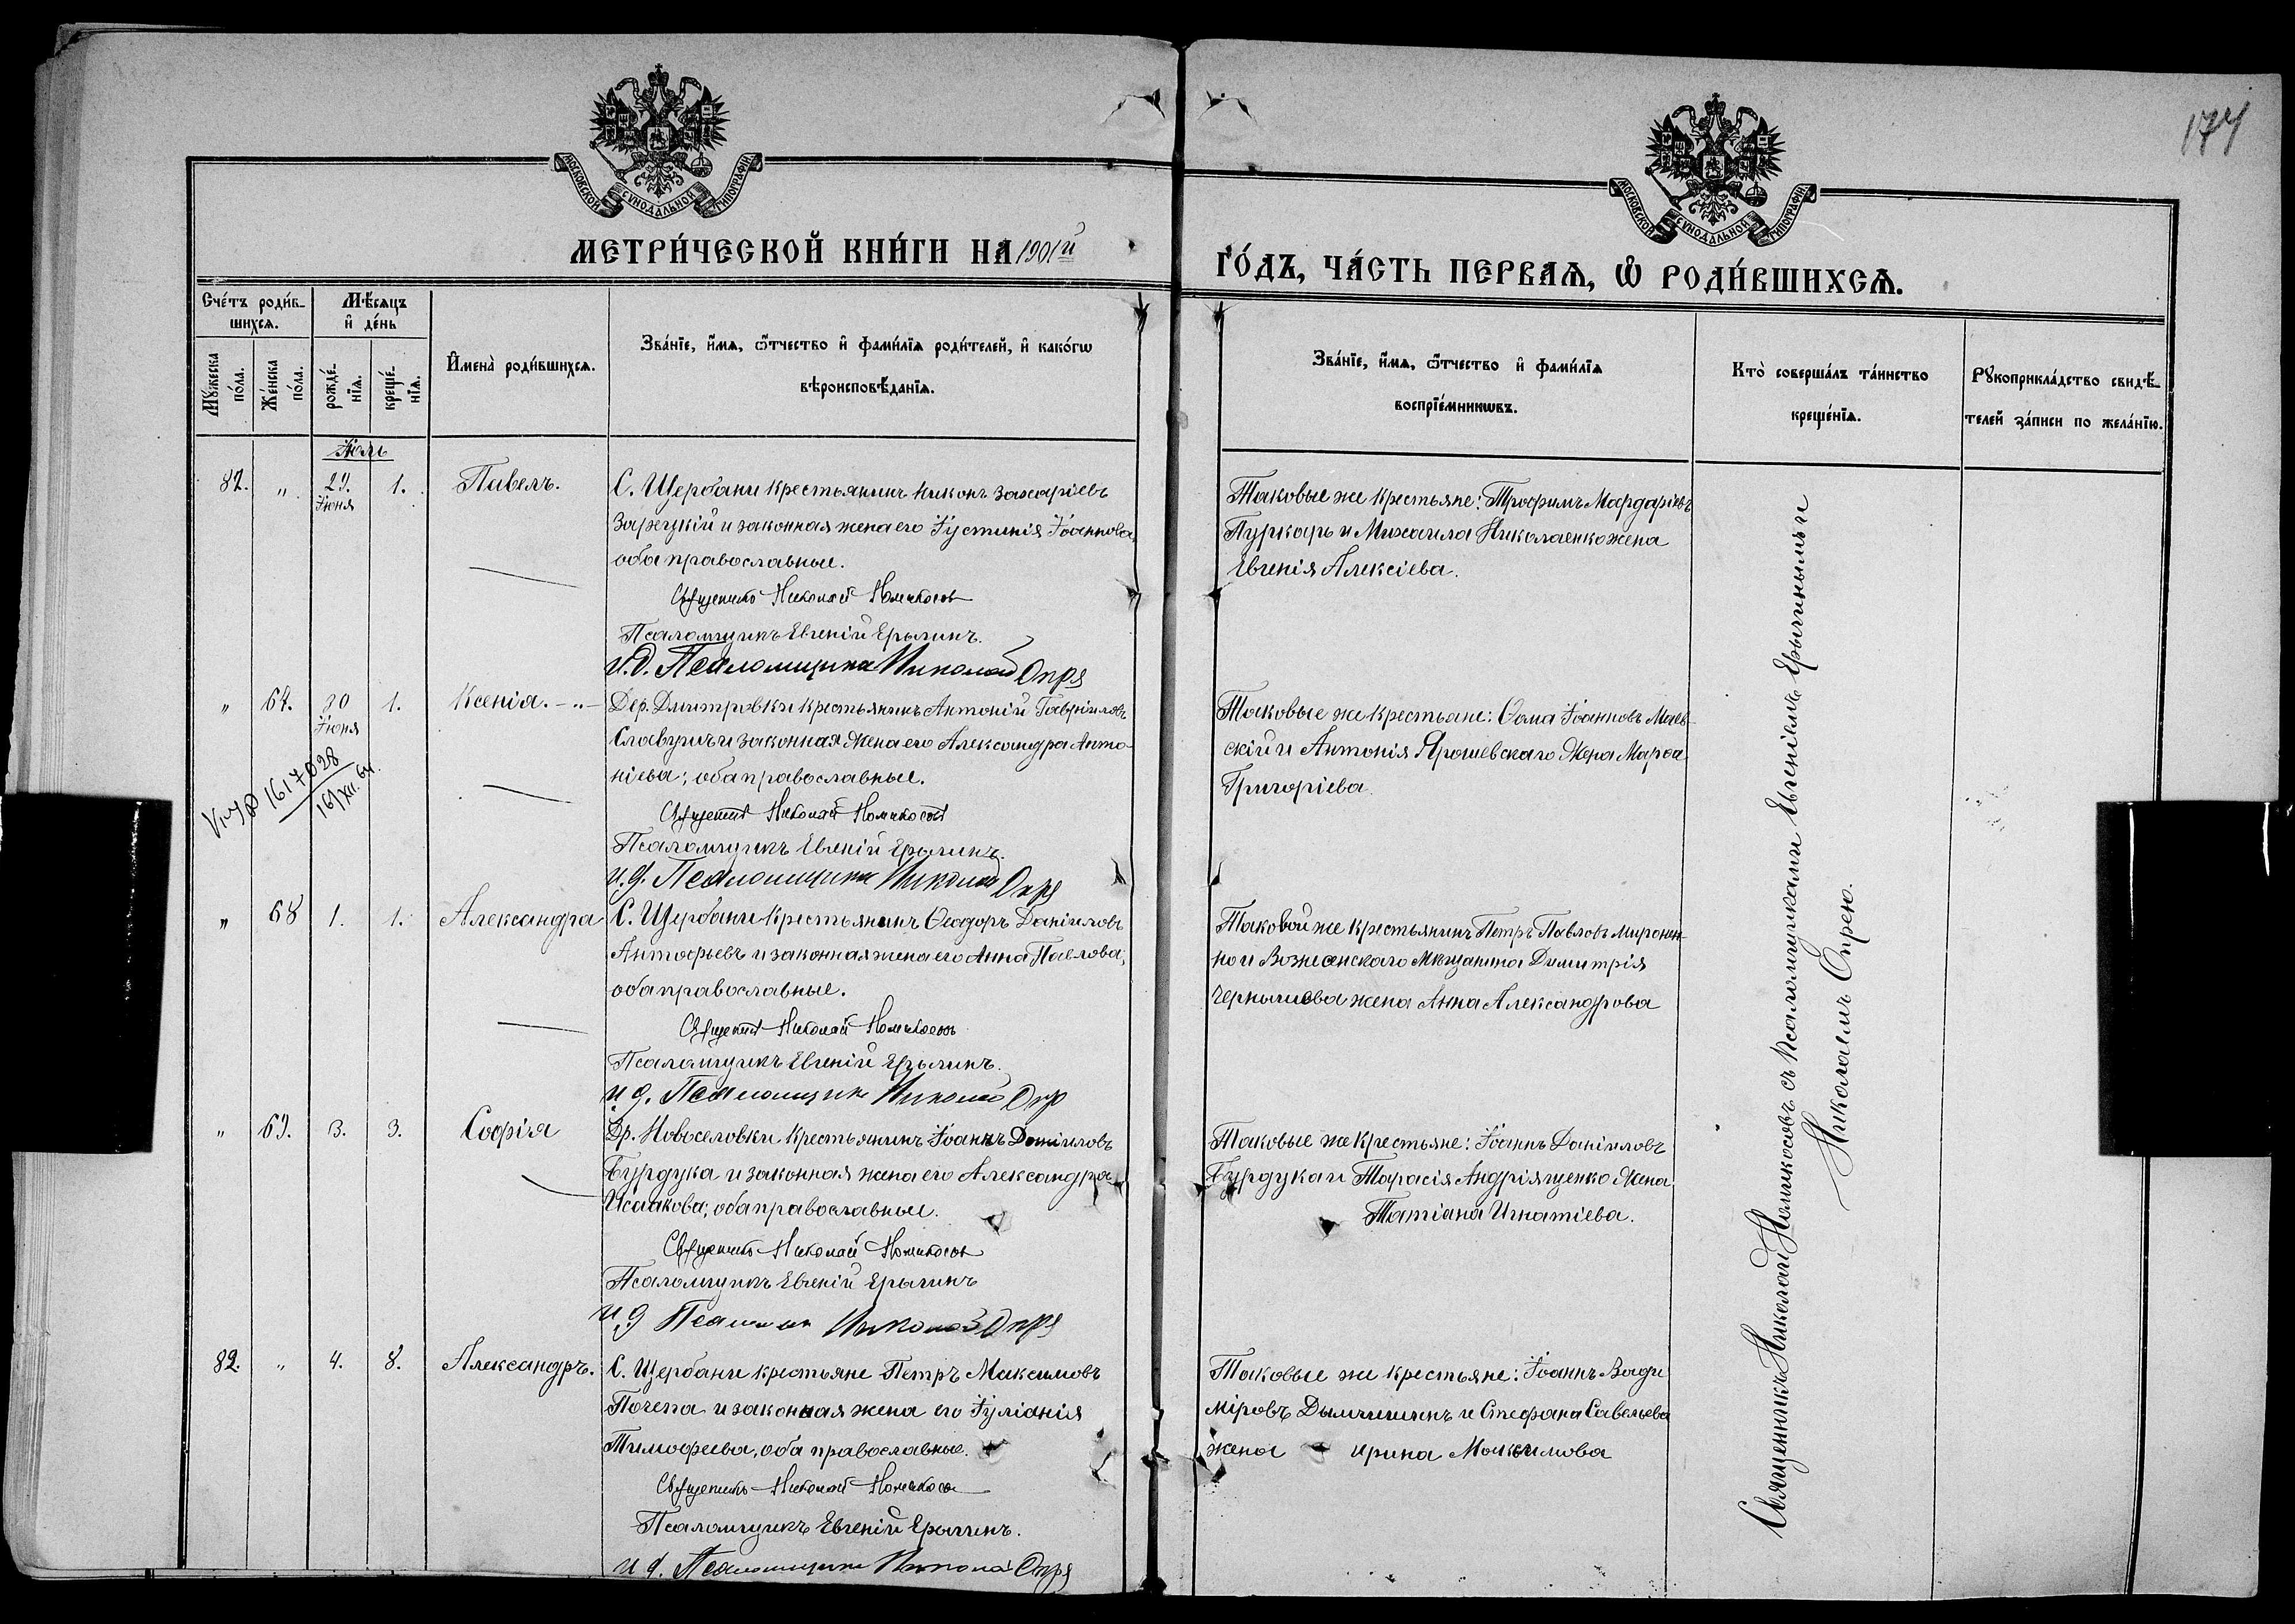 174
МОСКОВСКОЙ СУНОДАЛЬНОЙ ТИПОГРАФІИ
МОСКОВСКОЙ СУНОДАЛЬНОЙ ТИПОГРАФІИ
МЕТРИ́ЧЕСКОЙ КНИ́ГИ НА 1901й
ГО́ДЪ, ЧА́СТЬ ПЕРВАѦ, Ѿ РОДИ́ВШИХСѦ.
Сче́тъ роди́в-
шихсѧ.
Мѣ́сяцъ
и де́нь
Мꙋ́жеска
по́ла.
Же́нска
по́ла.
рожде́-
нїѧ.
креще́-
нїѧ.
Имена̀ роди́вшихсѧ.
Зва́нїе, и́мѧ, ѻ́тчество и фами́лїѧ роди́телей, и како́гѡ
вѣроисповѣ́данїѧ.
Зва́нїе, и́мѧ, ѻ́тчество и фами́лїѧ
воспрїе́мникѡвъ.
Кто̀ соверша́лъ та́инство
креще́нїѧ.
Рꙋкоприкла́дство свидѣ́-
телей за́писи по жела́нїю.
Іюль
82. „ 29. Іюня 1. Павелъ.
С. Щербани крестьянинъ Никонъ Захаріевъ
Зарецкій и законная жена его Іустинія Іоаннова,
оба православные.
Священникъ Николай Номикосовъ
Псаломщикъ Евгеній Ерыгинъ.
И.д. Псаломщика Николай Опря
Таковые же крестьяне: Трофимъ Мардаріевъ
Пуркарь и Михаила Николаенко жена
Евгенія Алексіева.
„ 67. 30 Іюня 1. Ксенія. - „ -
Дер. Дмитровки крестьянинъ Антоній Гавріиловъ
Славуничъ и законная жена его Александра Анто-
ніева; оба православные.
Священникъ Николай Номикосовъ
Псаломщикъ Евгеній Ерыгинъ.
И.д. Псаломщика Николай Опря
1617028
16/XII. 64.
Таковые же крестьяне: Ѳома Іоанновъ Маев-
скій и Антонія Ярошевскаго жена Марѳа
Григоріева.
„ 68 1. 1. Александра
С. Щербани крестьянинъ Ѳеодоръ Даніиловъ
Антофьевъ и законная жена его Анна Павлова;
оба православные.
Священникъ Николай Номикосовъ
Псаломщикъ Евгеній Ерыгинъ.
И д. Псаломщика Николай Опр
Таковой же крестьянинъ Петръ Павловъ Миронен-
ко и Вознесенскаго мѣщанина Димитрія
Чернышова жена Анна Александрова
„ 69. 3. 3. Софія
Др. Новоселовки крестьянинъ Іоаннъ Даніиловъ
Бурдука и законная жена его Александра
Исаакова; оба православные.
Священникъ Николай Номикосовъ
Псаломщикъ Евгеній Ерыгинъ
И д Николай Опря
Таковые же крестьяне: Іоаннъ Даніиловъ
Бурдука и Тарасія Андріященко жена
Татіана Игнатіева.
82. „ 4. 8. Александръ.
С. Щербани крестьяне Петръ Максимовъ
Почепа и законная жена его Іуліанія
Тимофеева, оба православные.
Священникъ Николай Номикосов
Псаломщикъ Евгеній Ерыгинъ.
И д. Псаломщика Никола Опря
Таковые же крестьяне: Іоаннъ Влади
міровъ и Стефана Савельева
жена Ирина Максимова
Священникъ Николай Номикосовъ съ псаломщиками Евгеніемъ Ерыгинымъ и
Николаемъ Опрею.